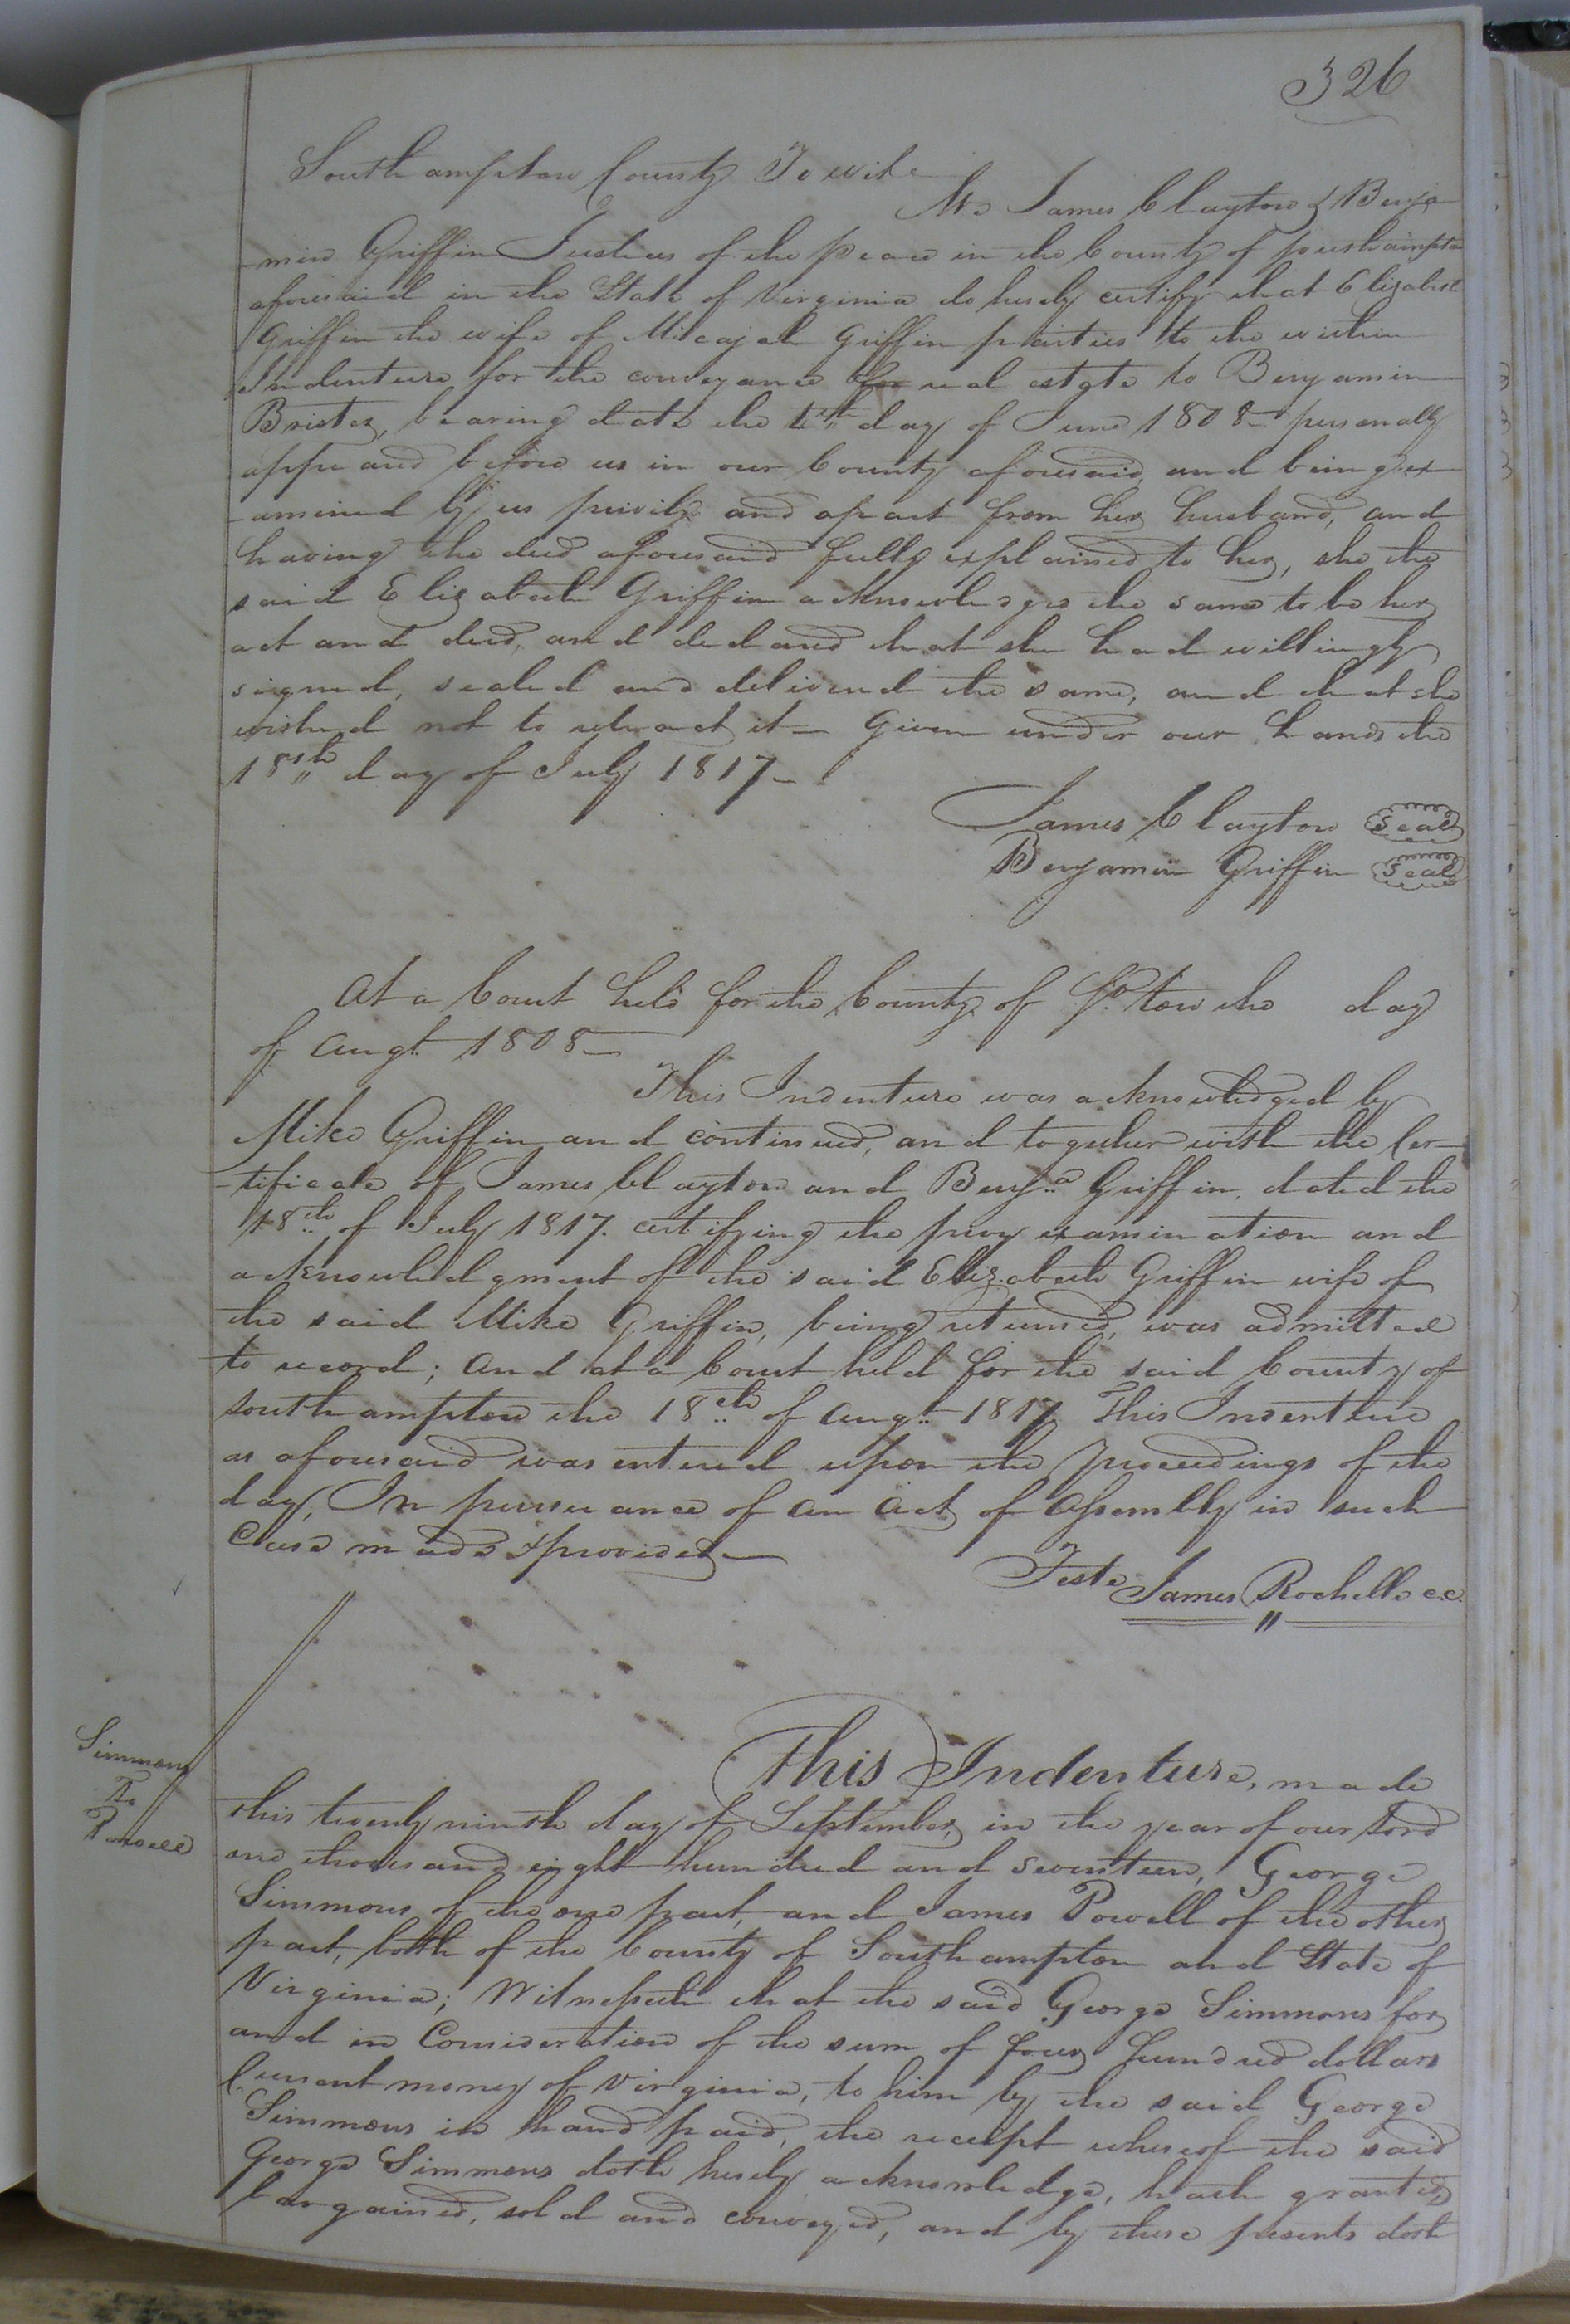 326
Southampton County To wit.
We James Clayton & Benja
-min Griffin Justices of the peace in the County of southampton
aforesaid in the State of Virginia do hereby certify that Elizabeth
Griffin the wife of Micajah Griffin parties to the within
Indenture for the conveyance for real estate to Benjamin
Brister, bearing date the day of June 1808 personally
appeared before us in our County aforesaid, and being ex
-amined by us privily and apart from her husband, and
having the deed aforesaid fully explained to her, she the
said Elizabeth Griffin acknowledged the same to be her
act and deed, and declared that she had willingly
signed, sealed and delivered the same, and that she
wished not to retract it — Given under our hands the
18th day of July 1817 —
James Clayton Seal
Benjamin Griffin Seal
At a Court held for the County of So.ton the day
of Augt. 1808 —
This Indenture was acknowledged by
Mike Griffin and continued, and together with the Cer-
-tificate of James Clayton and Benja. Griffin, dated the
18th of July 1817. certifying the privy examination and
acknowledgment of the said Elizabeth Griffin wife of
the said Mike Griffin, being returned, was admitted
to record; and at a Court held for the said County of
Southampton the 18th of Augt. 1817 This Indenture
as aforesaid was entered upon the proceedings of the
day, In pursuance of an Act of Assembly in such
Case made & provided —
Teste James Rochelle c.c.
This Indenture, made
Simmons
To
Powell
this twenty ninth day of September in the year of our Lord
one thousand eight hundred and seventeen, George
Simmons of the one part, and James Powell of the other
part, both of the County of Southampton and State of
Virginia; Witnesseth that the said George Simmons for
and in Consideration of the sum of four hundred dollars
Current money of Virginia, to him by the said George
Simmons in hand paid, the receipt whereof the said
George Simmons doth hereby acknowledge, hath granted,
bargained, sold and conveyed, and by these presents doth